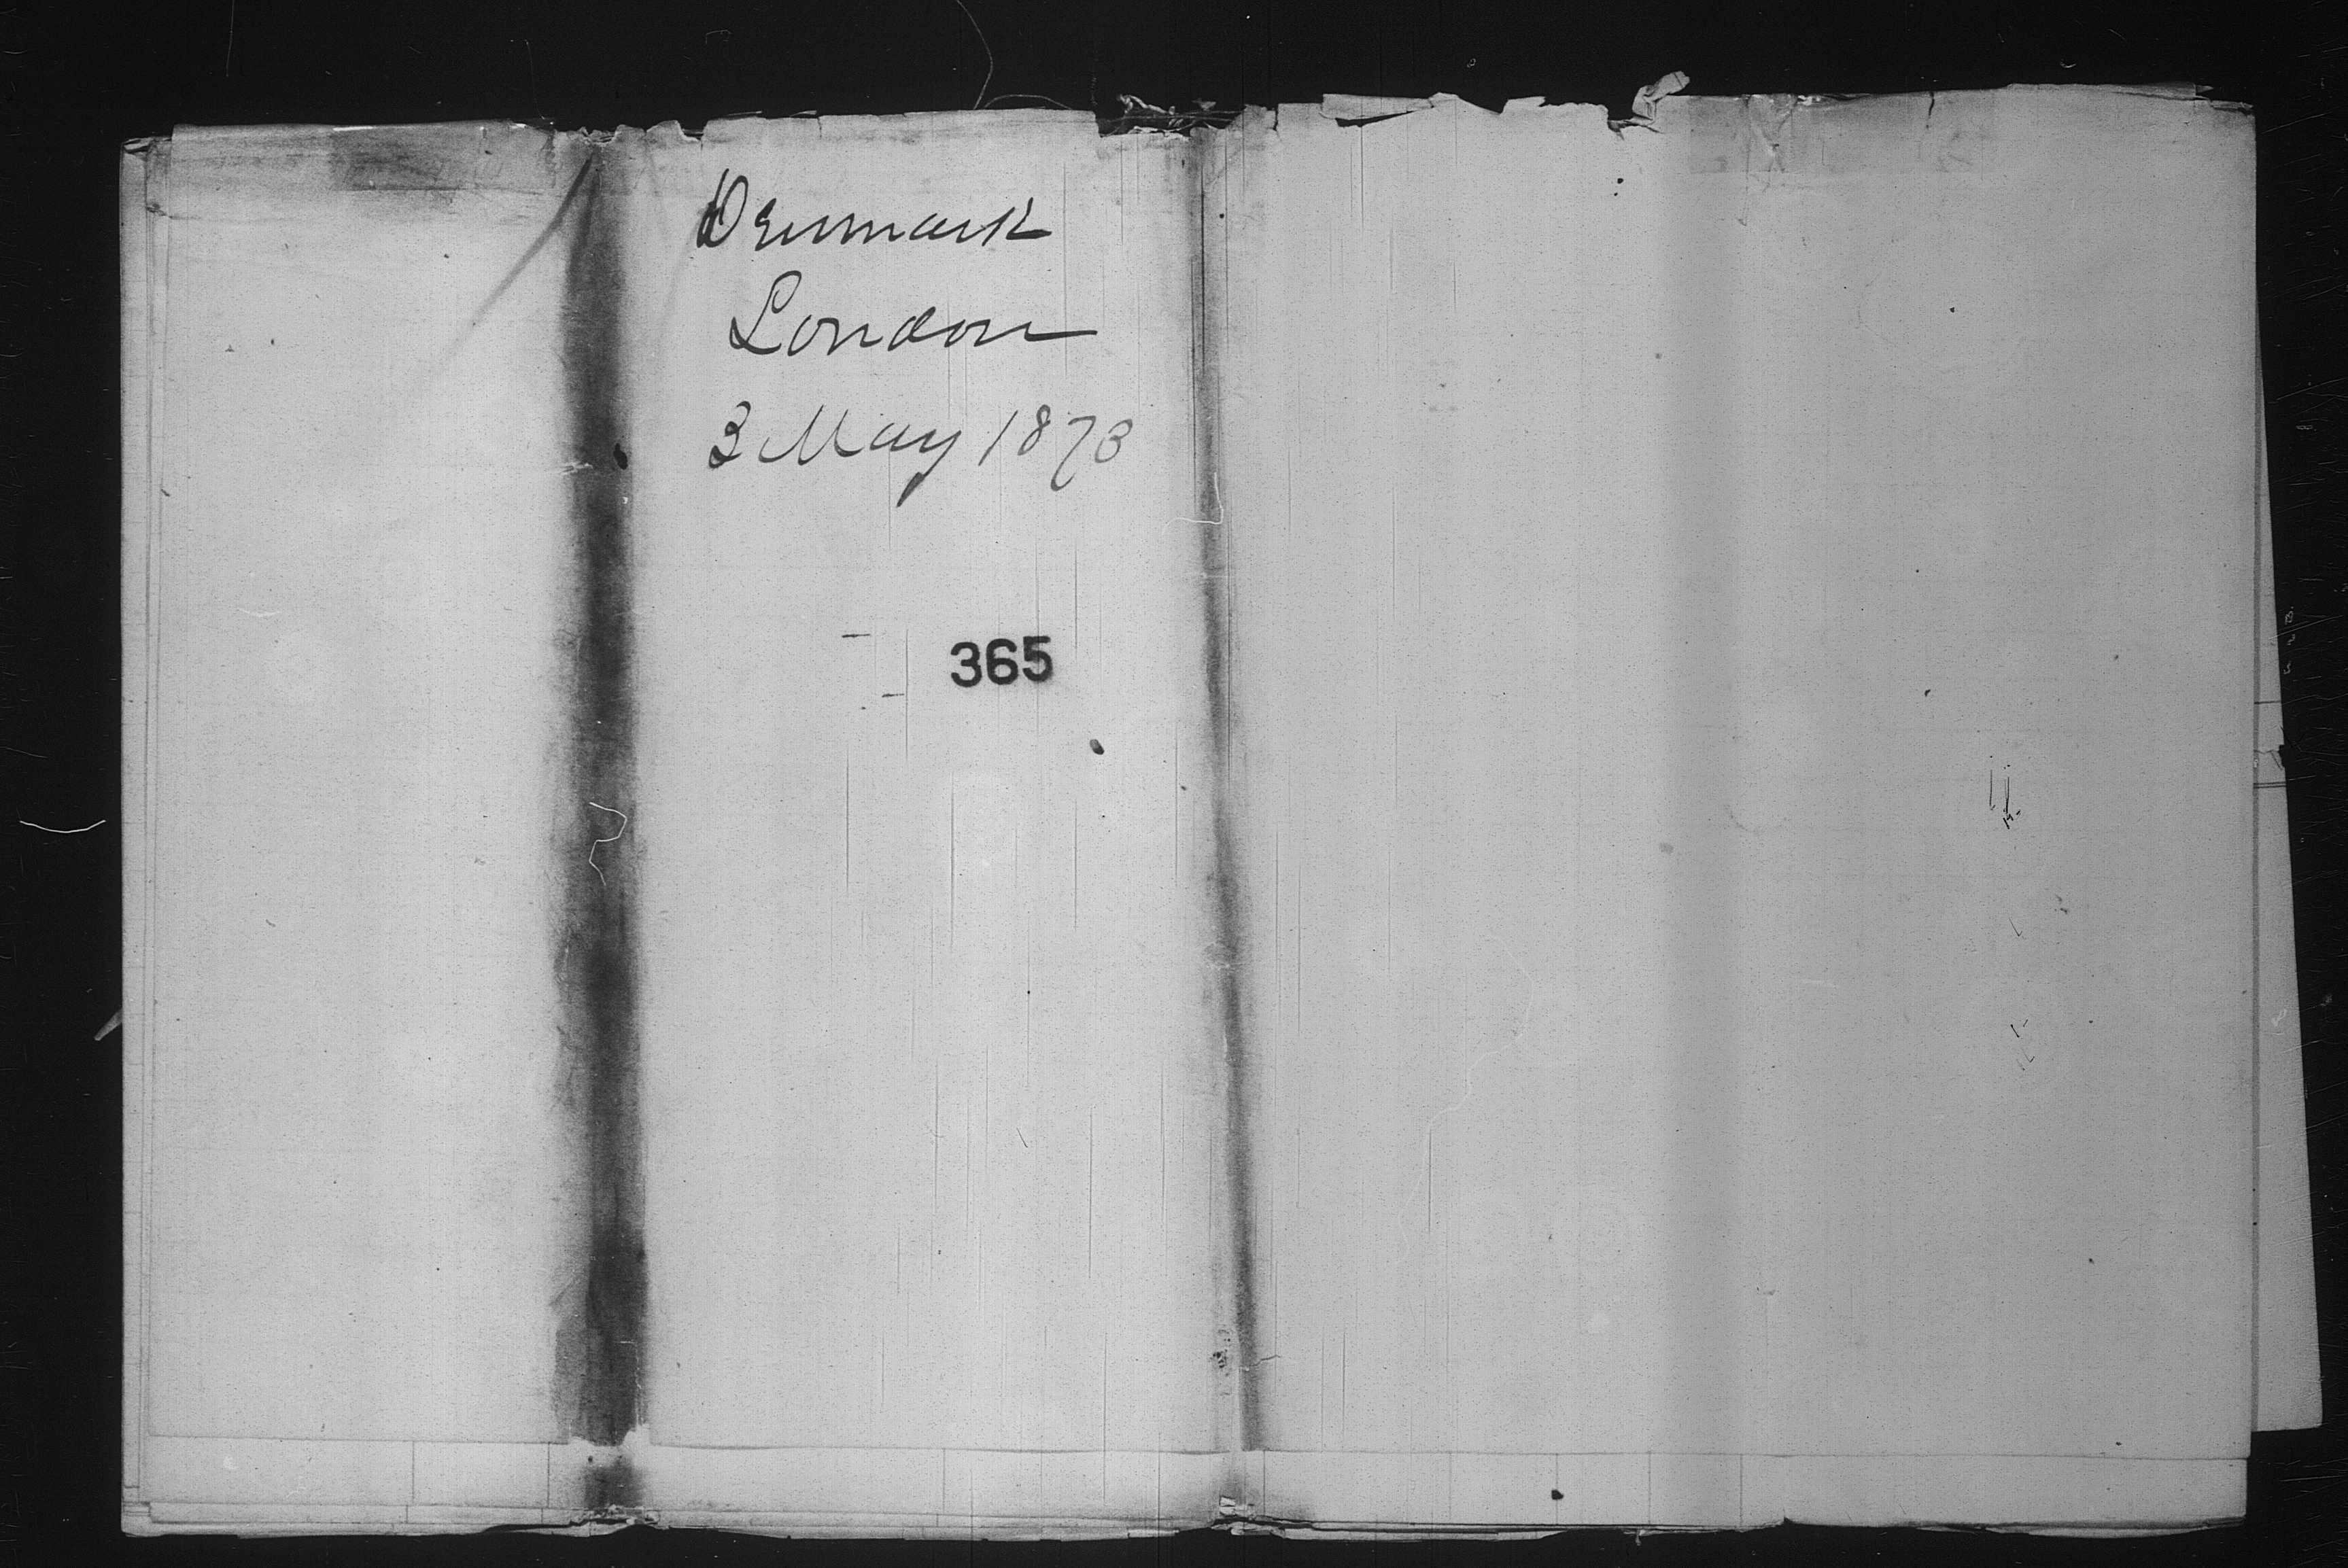 Denmark
London
3 May 1873
365